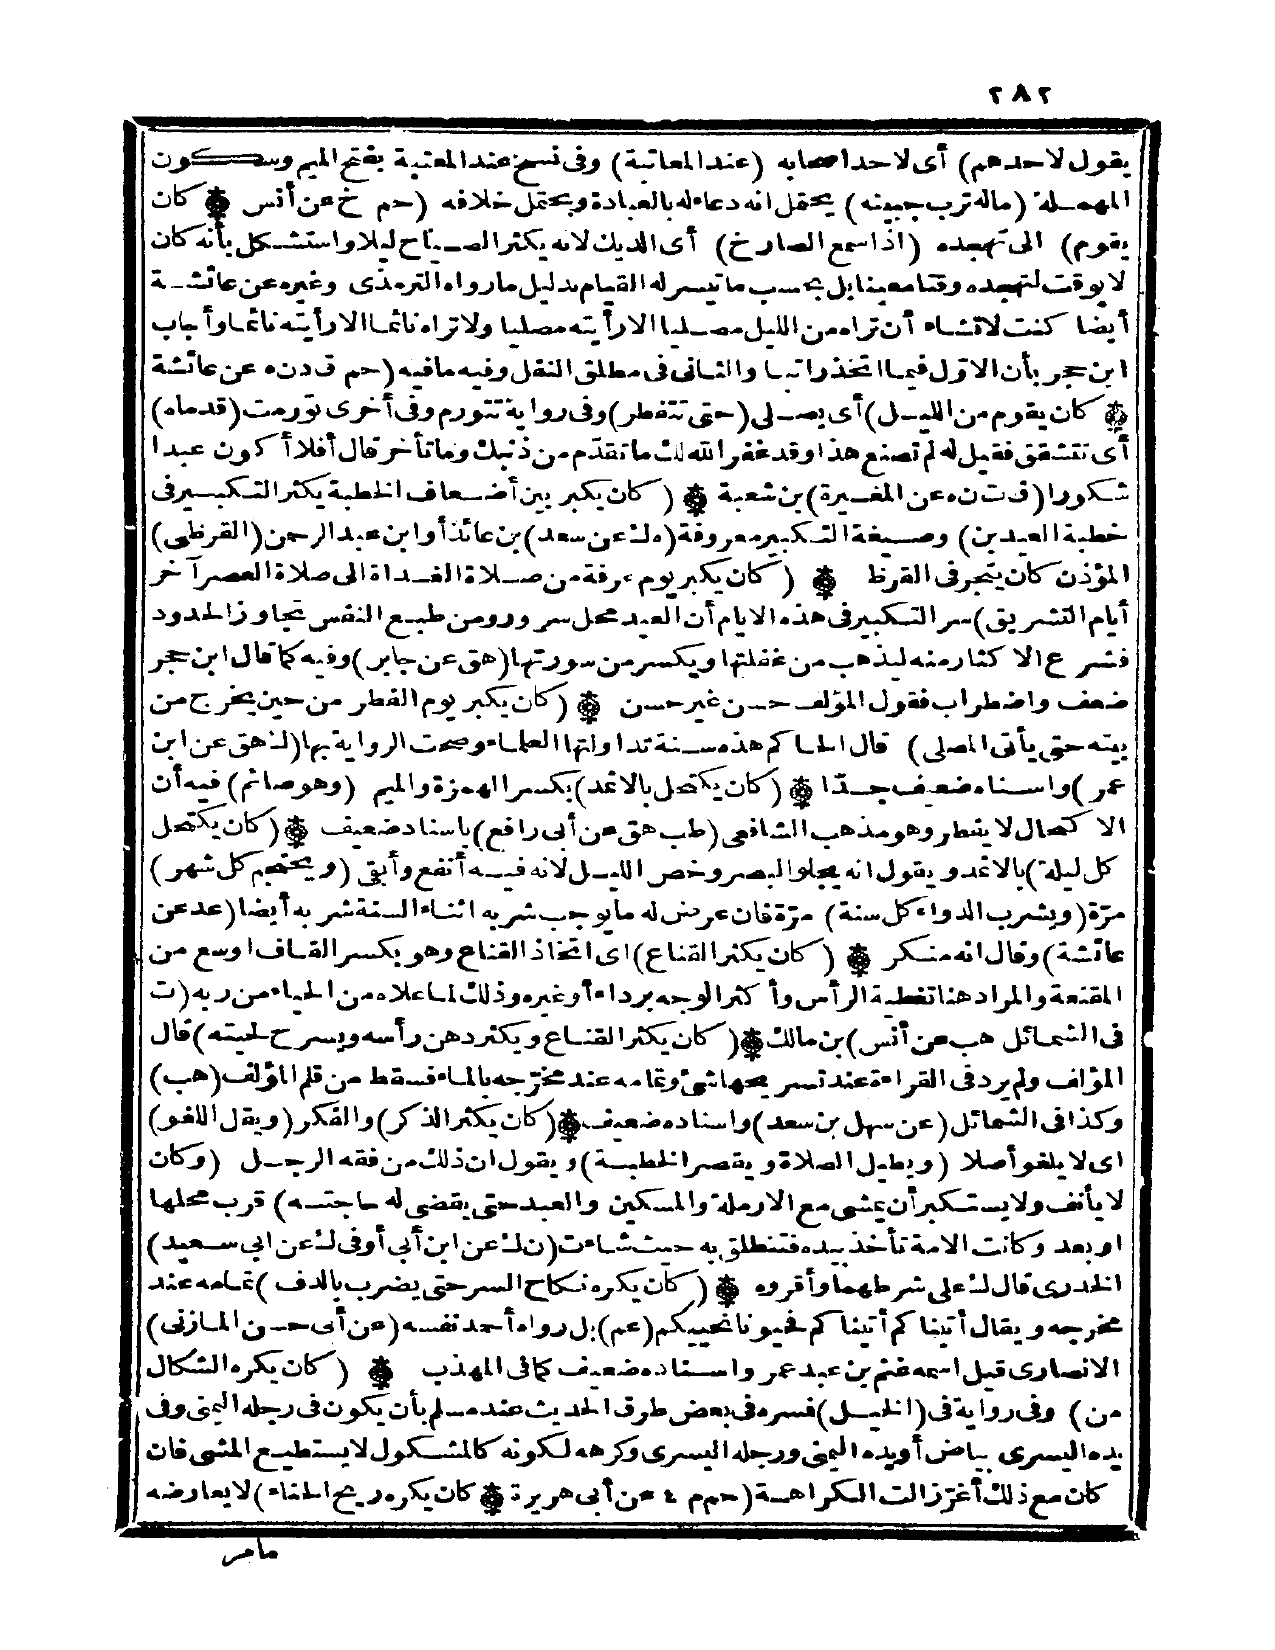 ٢٨٢
يقول لاحدهم) أى لاحد أصحابه (عند المعاتبة) وفى نسخ عند المعتبة بفتح الميم وسكون
المهملة (ماله ترب جبينه) يحتمل انه دعاء له بالعبادة ويحتمل خلافه (حم خ عن أنس ۞ كان
يقوم) الى تهجده (اذا سمع الصارخ) أى الديك لانه يكثر الصياح ليلا واستشكل بأنه كان
لا يوقت لتهجده وقتا معينا بل بحسب ما تيسر له القيام بدليل ما رواه الترمذى وغيره عن عائشة
أيضا كنت لا تشاء أن تراه من الليل مصليا الا رأيته مصليا ولا تراه نائما الا رأيته نائما وأجاب
ابن حجر بأن الاول فيما اتخذ راتبا والثانى فى مطلق النفل وفيه مافيه (حم ق د ن ه عن عائشة
۞ كان يقوم من الليل) أى يصلى (حتى تتفطر) وفى رواية تتورم وفى أخرى تورمت (قدماه)
أى تتشقق فقيل له لم تصنع هذا وقد غفر الله لك ما تقدم من ذنبك وما تأخر قال أفلا أكون عبدا
شكورا (ق ت ن ه عن المغيرة) بن شعبة ۞ (كان يكبر بين أضعاف الخطبة يكثر التكبير فى
خطبة العيدين) وصيغة التكبير معروفة (ه ك عن سعد) بن عائذ أو ابن عبد الرحمن (القرظى)
المؤذن كان يتجر فى القرظ ۞ (كان يكبر يوم عرفة من صلاة الغداة الى صلاة العصر آخر
أيام التشريق) سر التكبير فى هذه الايام أن العيد محل سرور ومن طبع النفس تجاوز الحدود
فشرع الاكثار منه ليذهب من غفلتها ويكسر من سورتها (هق عن جابر) وفيه كما قال ابن حجر
ضعف واضطراب فقول المؤلف حسن غير حسن ۞ (كان يكبر يوم الفطر من حين يخرج من
بيته حتى يأتى المصلى) قال الحاكم هذه سنة تداولتها العلماء وصحت الرواية بها (ك هق عن ابن
عمر) واسناده ضعيف جدا ۞ (كان يكتحل بالاثمد) بكسر الهمزة والميم (وهو صائم) فيه أن
الاكتحال لا يفطر وهو مذهب الشافعى (طب هق عن أبى رافع) باسناد ضعيف ۞ (كان يكتحل
كل ليلة) بالاثمد ويقول انه يجلو البصر وخص الليل لانه فيه أنفع وأبق (ويحتجم كل شهر)
مرة (ويشرب الدواء كل سنة) مرة فان عرض له ما يوجب شربه اثناء السنة شربه أيضا (عد عن
عائشة) وقال انه منكر ۞ (كان يكثر القناع) اى اتخاذ القناع وهو بكسر القاف اوسع من
المقنعة والمراد هنا تغطية الرأس وأكثر الوجه برداء أو غيره وذلك لما علاه من الحياء من ربه (ت
فى الشمائل هب عن أنس) بن مالك ۞ (كان يكثر القناع ويكثر دهن رأسه ويسرح لحيته) قال
المؤلف ولم يرد فى القراءة عند تسريحها شئ وتمامه عند مخرجه بالماء فسقط من قلم المؤلف (هب)
وكذا فى الشمائل (عن سهل بن سعد) واسناده ضعيف ۞ (كان يكثر الذكر) والفكر (ويقل اللغو)
اى لا يلغو أصلا (ويطيل الصلاة ويقصر الخطبة) ويقول ان ذلك من فقه الرجل (وكان
لا يأنف ولا يستكبر أن يمشى مع الارملة والمسكين والعبد حتى يقضى له حاجته) قرب محلها
او بعد وكانت الامة تأخذ بيده فتنطلق به حيث شاءت (ن ك عن ابن أبى أوفى ك عن ابى سعيد)
الخدرى قال ك على شرطهما وأقروه ۞ (كان يكره نكاح السر حتى يضرب بالدف) تمامه عند
مخرجه ويقال أتيناكم أتيناكم فحيونا نحييكم (عم) بل رواه أحمد نفسه (عن أبى حسن المازنى)
الانصارى قيل اسمه غنم بن عبد عمر واسناده ضعيف كما فى المهذب ۞ (كان يكره الشكال
من) وفى رواية فى (الخيل) فسره فى بعض طرق الحديث عند مسلم بأن يكون فى رجله اليمنى وفى
يده اليسرى بياض أو يده اليمنى ورجله اليسرى وكرهه لكونه كالمشكول لا يستطيع المشى فان
كان مع ذلك أغر زالت الكراهة (حم م ٤ عن أبى هريرة ۞ كان يكره ريح الحناء) لا يعارضه
ما مر